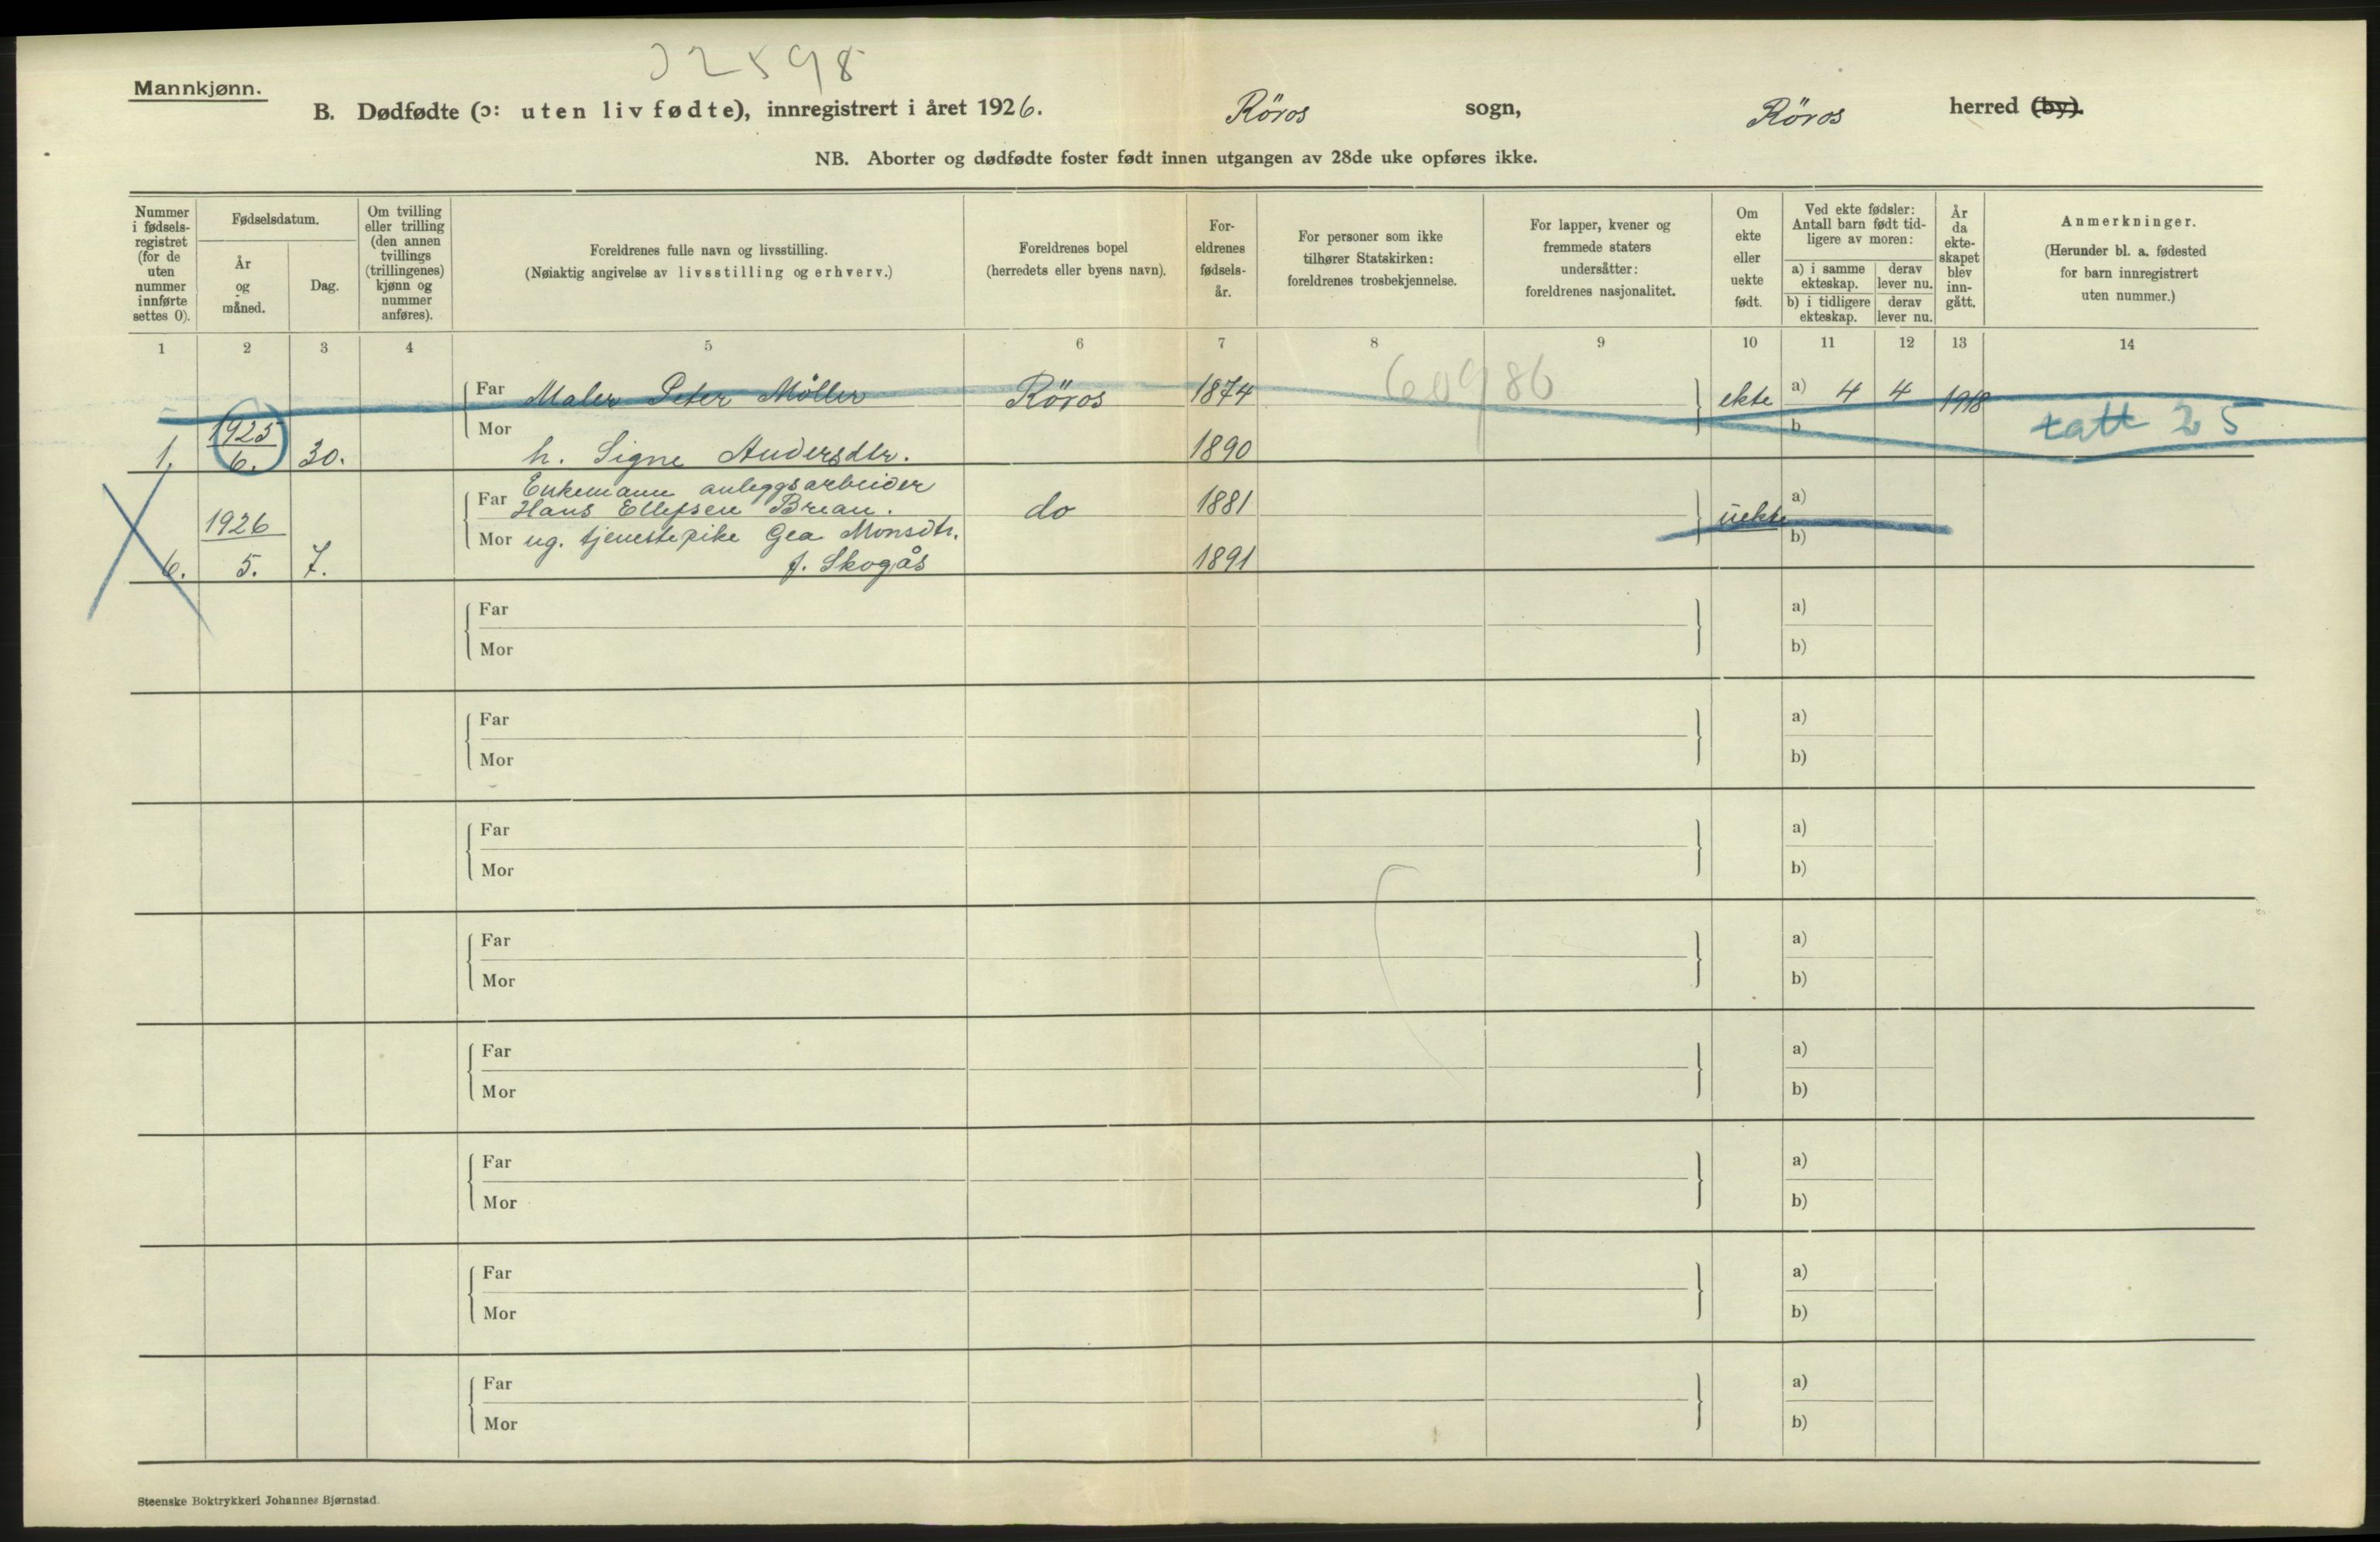 32598
Mannkjønn.
B. Dødfødte (ɔ: uten liv fødte), innregistrert i året 1926.
Röros sogn, Röros herred (by).
NB. Aborter og dødfødte foster født innen utgangen av 28de uke opføres ikke.
Nummer i fødsels-registret (for de uten nummer innførte settes 0).
Fødselsdatum.
År og måned.
Dag.
Om tvilling eller trilling (den annen tvillings (trillingenes) kjønn og nummer anføres).
Foreldrenes fulle navn og livsstilling.
(Nøiaktig angivelse av livsstilling og erhverv.)
Foreldrenes bopel
(herredets eller byens navn).
For-eldrenes fødsels-år.
For personer som ikke tilhører Statskirken: foreldrenes trosbekjennelse.
For lapper, kvener og fremmede staters undersåtter: foreldrenes nasjonalitet.
Om ekte eller uekte født.
Ved ekte fødsler: Antall barn født tid-ligere av moren:
a) i samme ekteskap.
derav lever nu.
b) i tidligere ekteskap.
derav lever nu.
År da ekte-skapet blev inn-gått.
Anmerkninger.
(Herunder bl. a. fødested for barn innregistrert uten nummer.)
1 2 3 4 5 6 7 8 9 10 11 12 13 14
60986
Far Maler Peter Möller Röros 1874 ekte a) 4 4 1918
tatt 25
1. 1925 6. 30.
Mor h. Signe Andersdtr. 1890 b
Far Enkemann anleggsarbeider
Hans Ellefsen Brean. do 1881 uekte a)
6. 1926 5. 7.
Mor ug. tjenestepike Gea Monsdtr. b)
f. Skogås 1891
Far a)
Mor b)
Far a)
Mor b)
Far a)
Mor b)
Far a)
Mor b)
Far a)
Mor b)
Far a)
Mor b)
Far a)
Mor b)
Far a)
Mor b)
Steenske Boktrykkeri Johannes Bjørnstad.